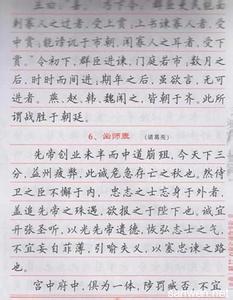 王曰:"善。"乃下令:"群臣吏民能面
刺寡人之过者,受上赏;上书谏寡人者,受
中赏;能谤讥于市朝,闻寡人之耳者,受下
赏。"令初下,群臣进谏,门庭若市;数月之
后,时时而间进;期年之后,虽欲言,无可
进者。燕、赵、韩、魏闻之,皆朝于齐。此所
谓战胜于朝廷。
6、出师表 (诸葛亮)
先帝创业未半而中道崩殂,今天下三
分,益州疲弊,此诚危急存亡之秋也。然侍
卫之臣不懈于内,忠志之士忘身于外者,
盖追先帝之殊遇,欲报之于陛下也。诚宜
开张圣听,以光先帝遗德,恢弘志士之气,
不宜妄自菲薄,引喻失义,以塞忠谏之路
也。
宫中府中,俱为一体,陟罚臧否,不宜
sanwen.net